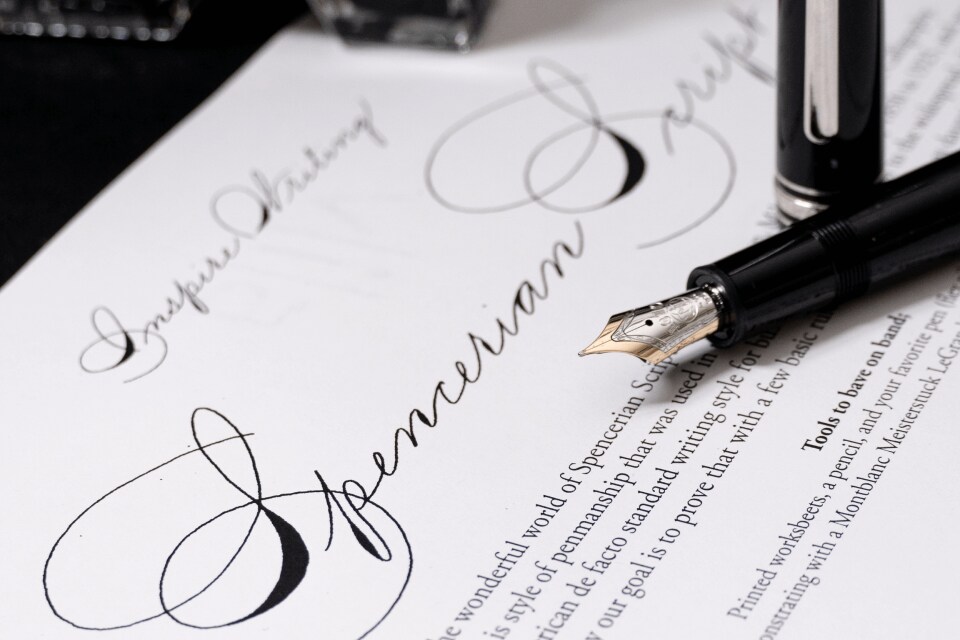 Inspire Writing
Spencerian Script
he wonderful world of Spencerian Scrip
is style of penmanship that was used in
rican de facto standard writing style for bu
y our goal is to prove that with a few basic ru
Tools to have on band;
Printed worksbeets, a pencil, and your favorite pen
onstrating with a Montblanc Meisterstuck LeGran